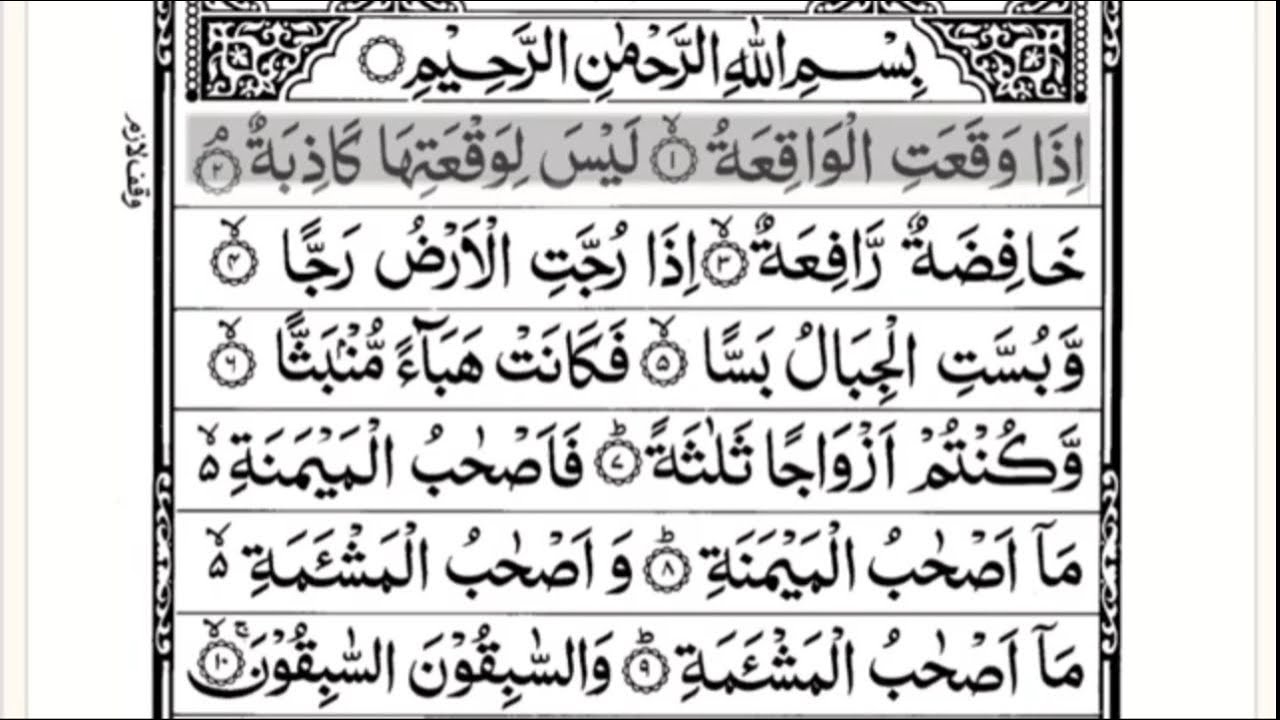 بِسْمِ اللهِ الرَّحْمٰنِ الرَّحِيْمِ ۝
اِذَا وَقَعَتِ الْوَاقِعَةُ ۙ‏﴿۱﴾ لَيْسَ لِوَقْعَتِهَا كَاذِبَةٌ ۘ‏﴿۲﴾
وقف لازم
خَافِضَةٌ رَّافِعَةٌ ۙ‏﴿۳﴾ اِذَا رُجَّتِ الْاَرْضُ رَجًّا ۙ‏﴿۴﴾
وَّبُسَّتِ الْجِبَالُ بَسًّا ۙ‏﴿۵﴾ فَكَانَتْ هَبَآءً مُّنْۢبَثًّا ۙ‏﴿۶﴾
وَّكُنْتُمْ اَزْوَاجًا ثَلٰثَةً ؕ‏﴿۷﴾ فَاَصْحٰبُ الْمَيْمَنَةِ ۙ۵
مَاۤ اَصْحٰبُ الْمَيْمَنَةِ ؕ‏﴿۸﴾ وَ اَصْحٰبُ الْمَشْئَمَةِ ۙ۵
مَاۤ اَصْحٰبُ الْمَشْئَمَةِ ؕ‏﴿۹﴾ وَالسّٰبِقُوْنَ السّٰبِقُوْنَ ۚۙ‏﴿۱۰﴾